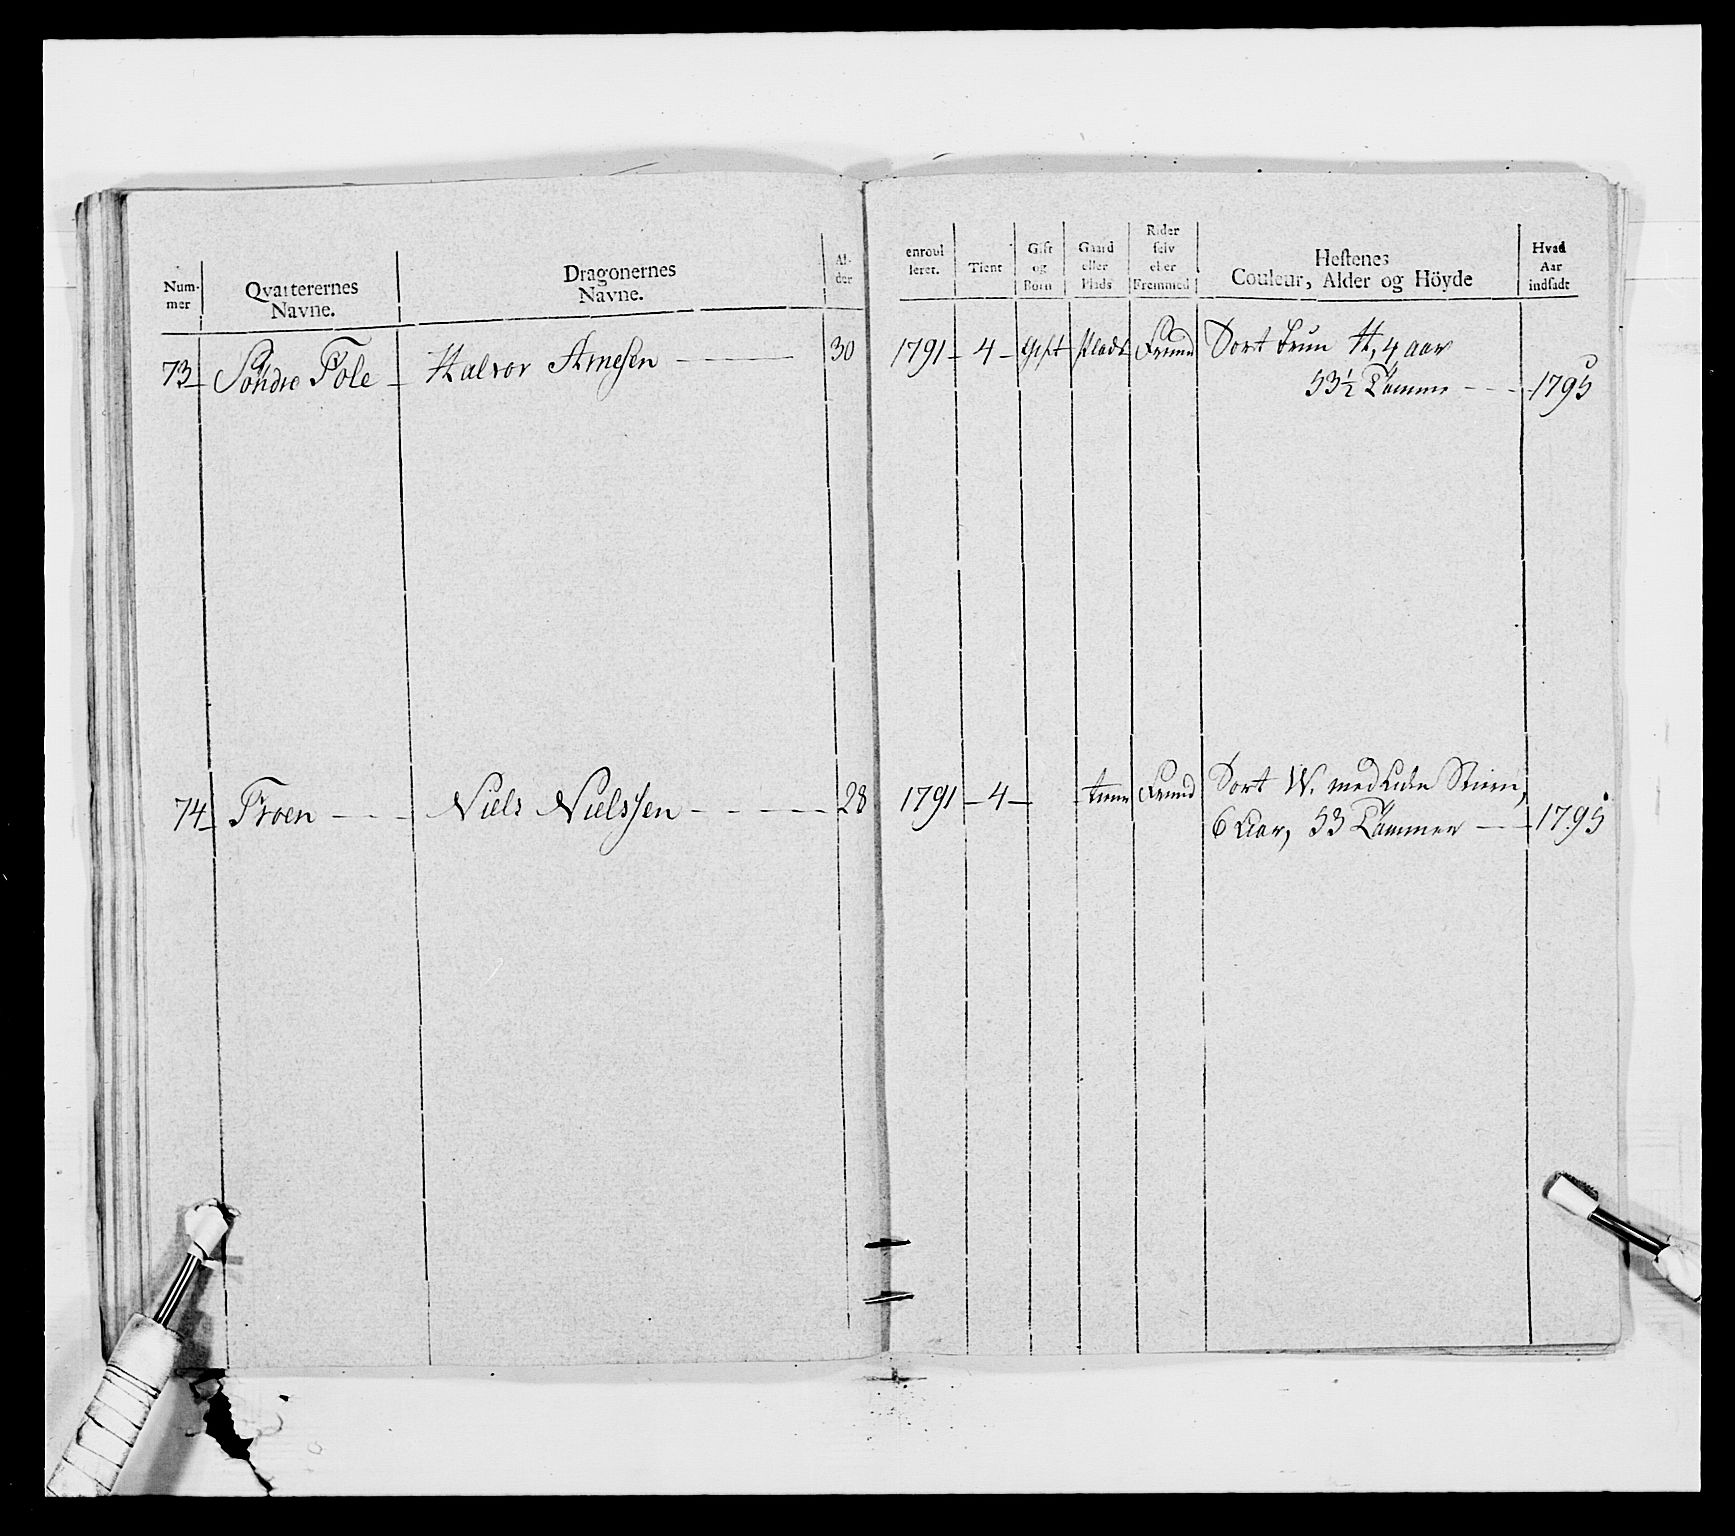 Num-
mer
Qvarterernes
Navne.
Dragonernes
Navne.
Al-
der
enroul
leret.
Tient
Gift
og
Born
Gaard
eller
Plads
Rider
selv
eller
Fremmed
Hestenes
Couleur, Alder og Höyde
Hvad
Aar
indsadt
73 Söndre Fole Halvor Arnesen 30 1791 4 Gift Plads Frmd Sort brun H, 4 aar
53½ Tommer 1795
74 Froen Niels Nielssen 28 1791 4 tiener Frmd Sort W. med Liden Stiern,
6 Aar, 53 Tommer 1795